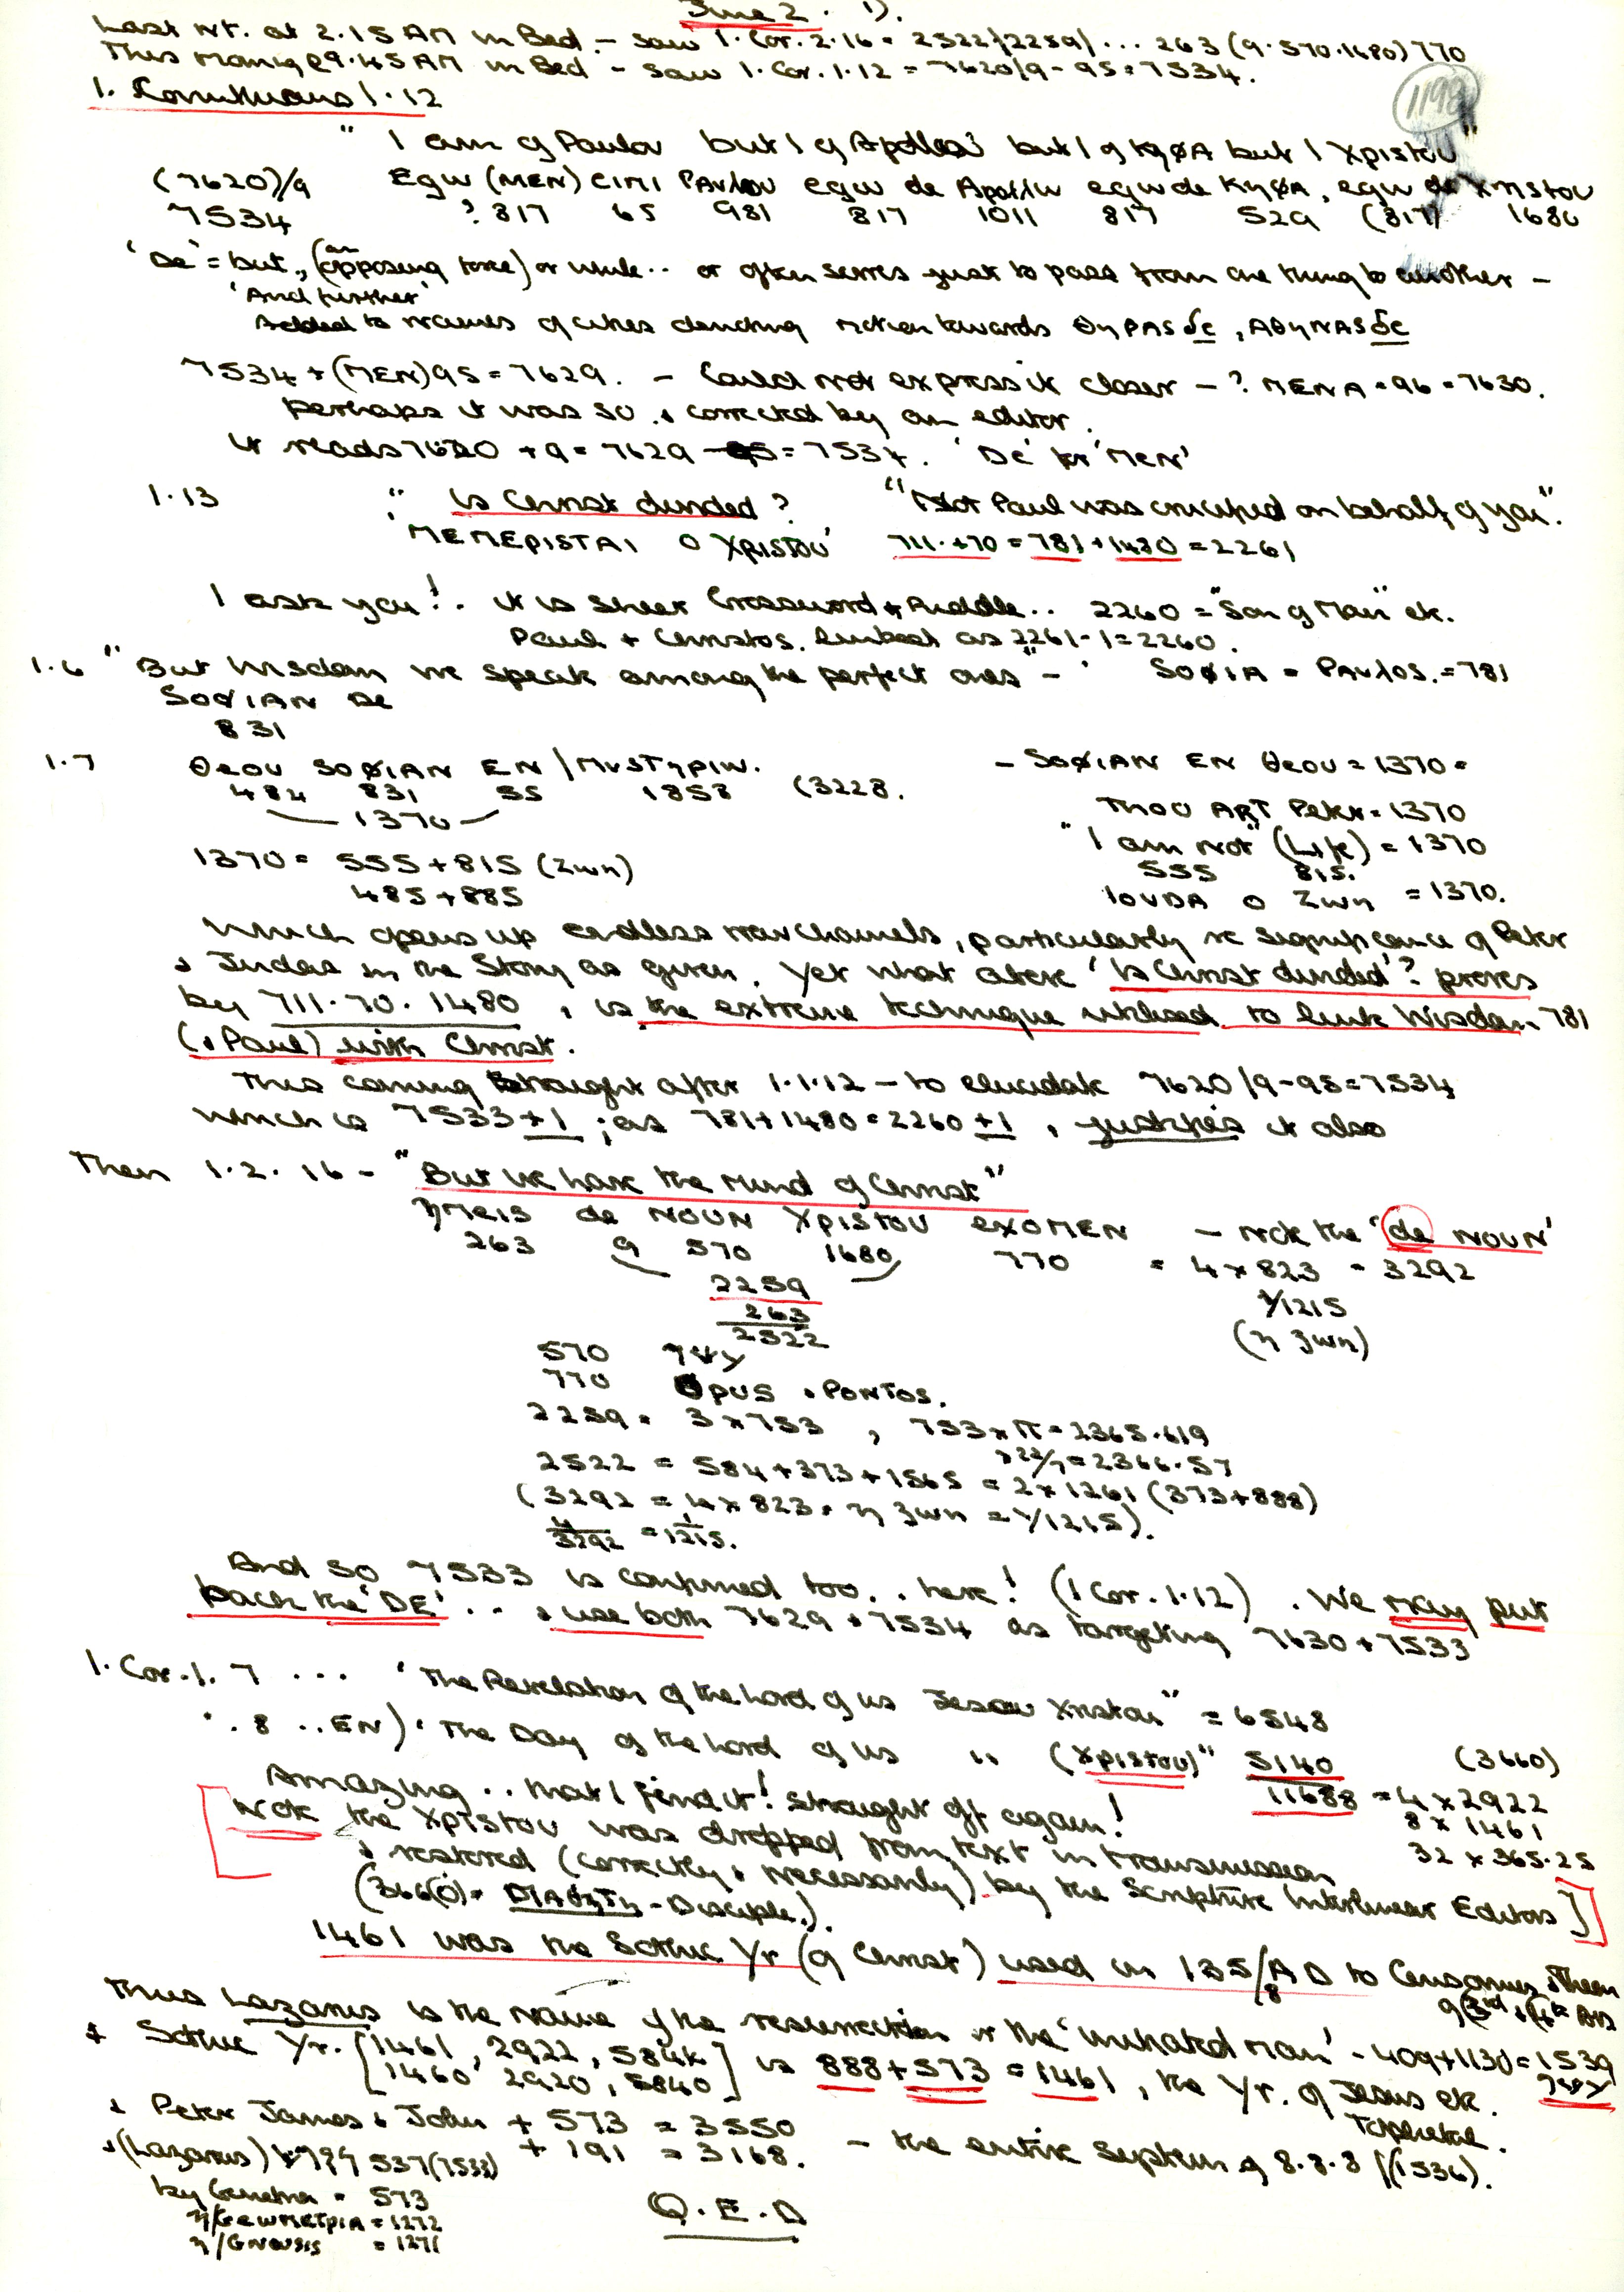 June 2. 1).
Last Nt. at 2.15 AM in Bed - saw 1. Cor. 2.16 = 2522/2259/... 263 (9.570.1680) 770
This morning @ 9.45 AM in Bed - saw 1. Cor. 1.12 = 7620/9 - 95 = 7534.
1198
1. Corinthians 1.12
" I am of Paulou but I of Apollos but I of KηφA but I Xpistou "
(7620)/9 EGW (MEN) EIMI PAVλOU EGW de Apollw EGW de KηφA, EGW de XPISTOU
7534 ? 817 65 981 817 1011 817 529 (817) 1680
'De' = but., (an opposing force) or while.. or often serves just to pass from one thing to another -
'And further'
Added to names of cities denoting motion towards ΘηPAS δε, AΘηNAS δε
7534 + (MEN) 95 = 7629. - Could not express it closer - ? MENA = 96 = 7630.
Perhaps it was so & corrected by an editor.
It reads 7620 + 9 = 7629 - 95 = 7534. 'De' for 'MEN'
1.13 " Is Christ divided? "Not Paul was crucified on behalf of you".
'MEMEPISTAI O XPISTOU' 711.+70 = 781 + 1480 = 2261
I ask you!. it is sheer Crossword & Puddle.. 2260 = "Son of Man" etc.
Paul + Christos. linked as 2261-1 = 2260.
1.6 " But Wisdom we speak among the perfect ones" - ' SOφIA = PAVλOS. = 781
SOφIAN De
831
1.7 ΘEOU SOφIAN EN / MUSTηPIW. - SOφIAN EN ΘEOU = 1370 =
484 831 55 1858 (3228.
1370 THOU ART Peter = 1370
"I am not" (Life) = 1370
1370 = 555 + 815 (Zwη) 555 815.
485 + 885 IOVDA O Zwη = 1370.
Which opens up endless new channels, particularly re significance of Peter
& Judas in the Story as given. Yet what alere 'Is Christ divided'? proves
by 711.70.1480, is the extreme technique utilised to link Wisdom 781
(& Paul) with Christ.
This coming straight after 1.1.12 - to elucidate 7620/9-95 = 7534
which is 7533 + 1; as 781 + 1480 = 2260 + 1, justifies it also
Then 1.2.16 - "But we have the Mind of Christ"
ηMEIS de NOUN XPISTOU EXOMEN - Note the 'de NOUN'
263 9 570 1680 770 = 4 x 823 = 3292
2259 1/1215
263 (η zwη)
2522
570 7ΨY
770 OPUS & PONTOS.
2259 = 3 x 753, 753 x π = 2365.619
x 22/7 = 2366.57
2522 = 584 + 373 + 1565 = 2 x 1261 (373 + 888)
(3292 = 4 x 823. η zwη = 1/1215).
4/3292 = 1/1215.
And so 7533 is confirmed too.. here! (1 Cor. 1.12). We may put
back the 'DE'... & use both 7629 & 7534 as targeting 7630 + 7533
1. Cor. 1. 7 ... 'The Revelation of the Lord of us Jesou Xristou" = 6548
". 8 .. EN) 'The Day of the Lord of us " (Xpistou)" 5140 (3660)
Amazing.. that I find it! straight off again! 11688 = 4 x 2922
8 x 1461
32 x 365.25
[Note the XPISTOU was dropped from text in transmission
& restored (correctly & necessarily) by the Scripture Interlinear Editors]
(366(0) = MAΘηTη - Disciple.).
1461 was the Sothic Yr (of Christ) used in 135/8 AD to Censorinus & Theon
of 3rd & 4th AD
Thus Lazarus is the Name of the resurrection or the 'initiated man' - 409 + 1130 = 1539
+ Sothic Yr. [1461, 2922, 5844 / 1460, 2920, 5840] is 888 + 573 = 1461, the Yr. of Jesus etc.
& Peter James & John + 573 = 3550
&(Lazarus) 537 (7533) + 191 = 3168. - the entire system of 8.8.8 ((1536).
by Gematria = 573
η/GEWMETPIA = 1272
η/GNWSIS = 1271
Q.E.D